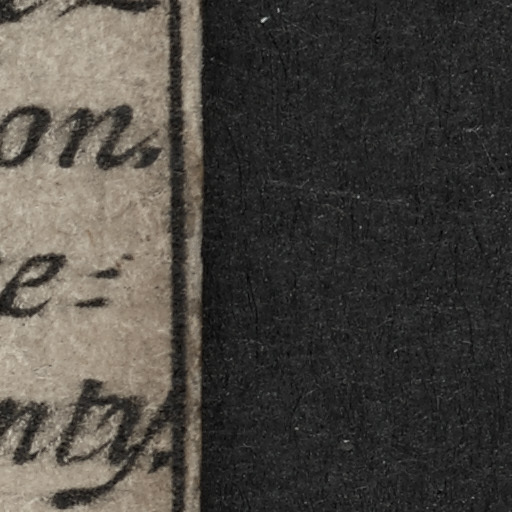 on,
e=
nty.